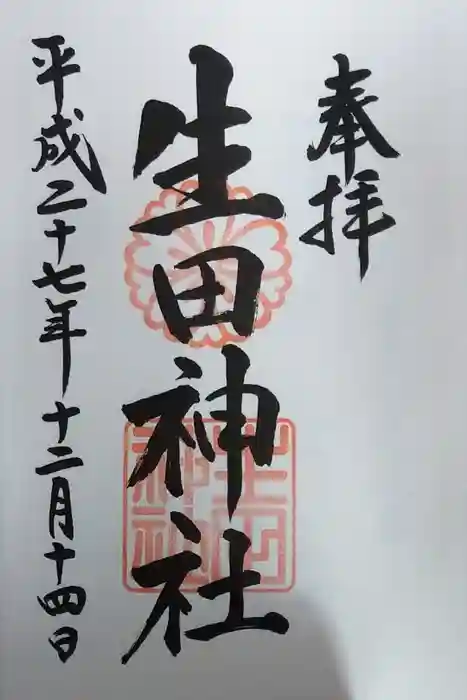 奉拝
生田神社
平成二十七年十二月十四日
生田
神社